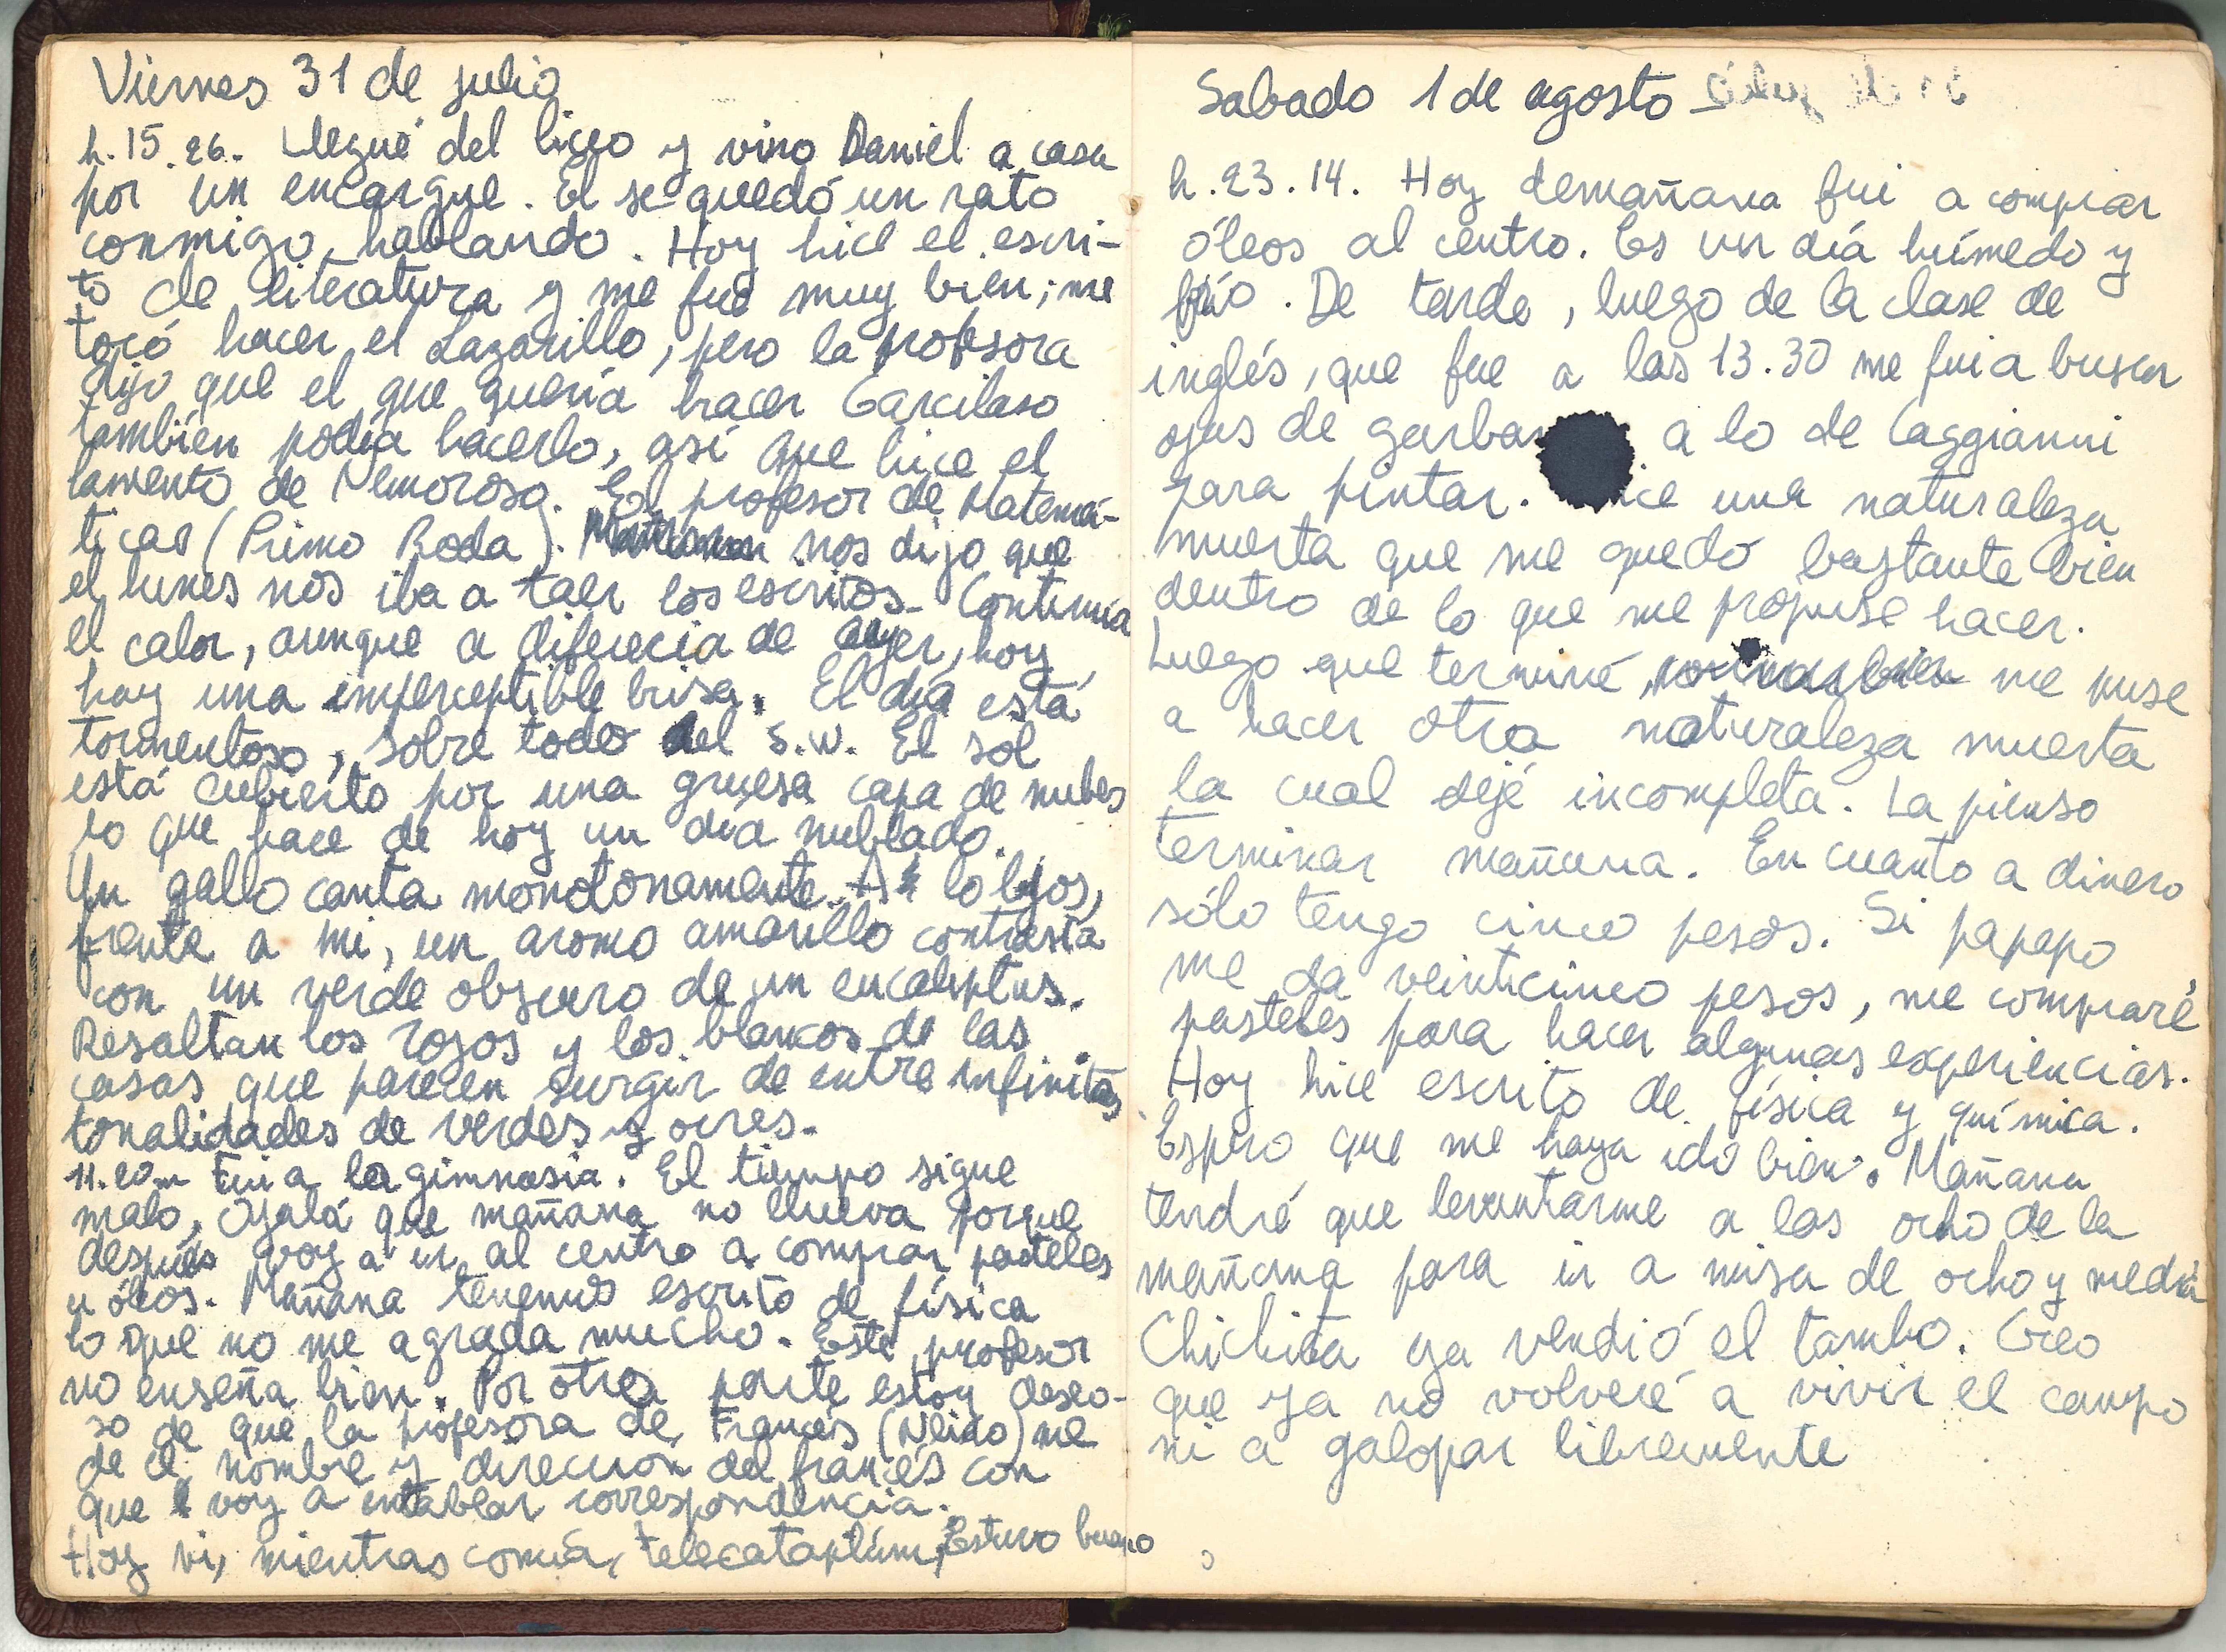 Viernes 31 de julio
h.15.26. Llegué del liceo y vino Daniel a casa
por un encargue. El se quedó un rato
conmigo, hablando. Hoy hice el escri-
to de literatura y me fue muy bien; me
tocó hacer el Lazarillo, pero la profesora
dijo que el que quería hacer Garcilaso
también podía hacerlo, así que hice el
lamento de Nemoroso. El profesor de Matemá-
ticas (Primo Roda). nos dijo que
el lunes nos iba a taer los escritos. Continúa
el calor, aunque a diferecia de ayer, hoy
hay una imperceptible brisa. El día está
tormentoso, sobre todo del S.W. El sol
está cubierto por una gruesa capa de nubes
lo que hace de hoy un día nublado.
Un gallo canta monotonamente. A lo lejos,
frente a mi, un aromo amarillo contrasta
con un verde obscuro de un eucaliptus.
Resaltan los rojos y los blancos de las
casas que parecen surgir de entre infinitas
tonalidades de verdes y ocres.
11.20m Fui a la gimnasia. El tiempo sigue
malo, Ojalá que mañana no llueva porque
después voy a ir al centro a comprar pasteles
u óleos. Mañana tenemos escrito de física
lo que no me agrada mucho. Este profesor
no enseña bien. Por otra parte estoy deseo-
so de que la profesora de Francés (Neido) me
de el nombre y dirección del francés con
que voy a entablar correspondencia.
Hoy vi, mientras comía, telecataplúm, Estuvo bueno
Sabado 1 de agosto
h.23.14. Hoy demañana fui a comprar
óleos al centro. Es un día húmedo y
frío. De tarde, luego de la clase de
inglés, que fue a las 13.30 me fui a buscar
ojas de garban a lo de Caggianni
para pintar. ice una naturaleza
muerta que me quedó bastante bien
dentro de lo que me propuse hacer.
Luego que terminé, me puse
a hacer otra naturaleza muerta
la cual dejé incompleta. La pienso
terminar mañana. En cuanto a dinero
sólo tengo cinco pesos. Si papapo
me da veinticinco pesos, me compraré
pasteles para hacer algunas experiencias.
Hoy hice escrito de física y química.
Espero que me haya ido bien. Mañana
tendré que levantarme a las ocho de la
mañana para ir a misa de ocho y media
Chichita ya vendió el tambo. Creo
que ya no volveré a vivir el campo
ni a galopar libremente